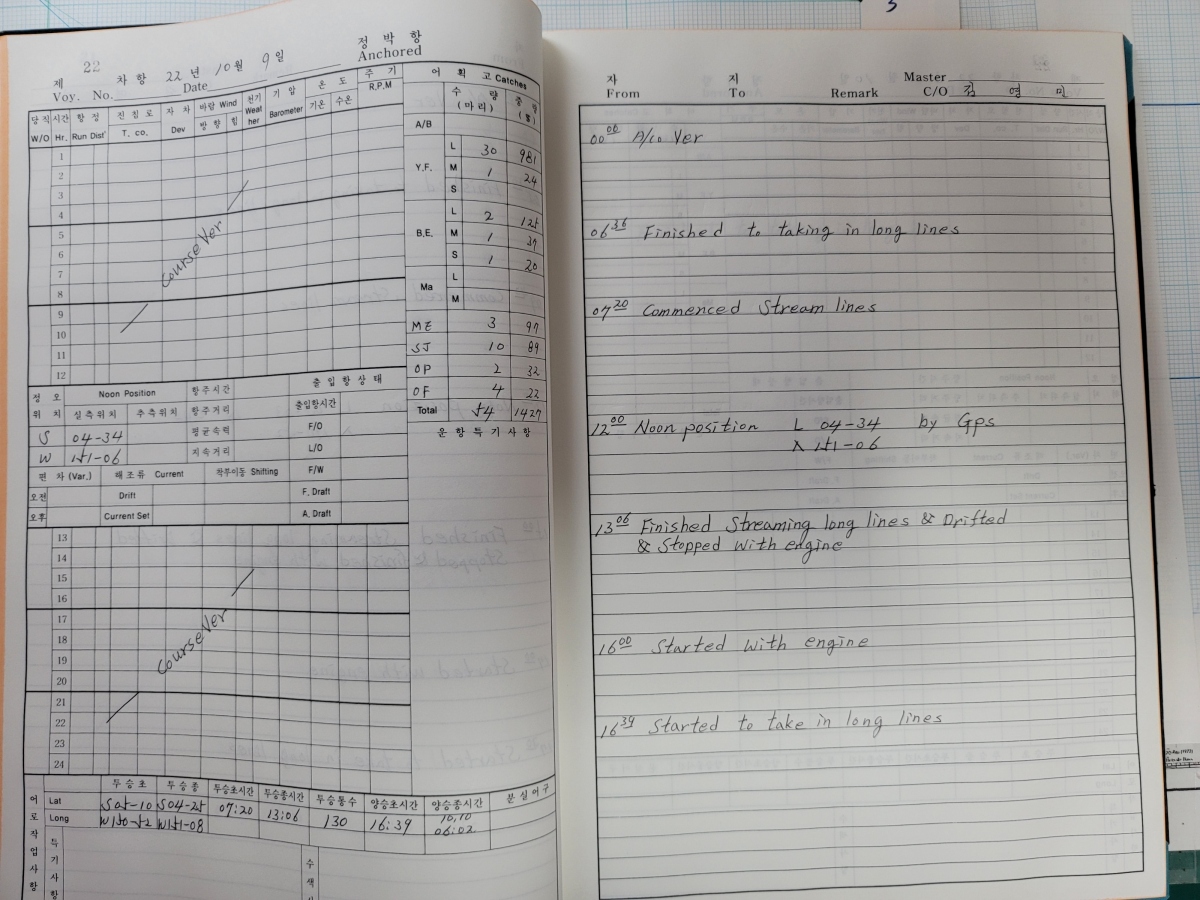 22
제 차항 22년 10월 9일 정박항
Voy. No. Date Anchored
당직 시간 항정 진침로 자차 바람 Wind 천기 기압 온도 주기
W/O Hr. Run Dist' T. co. Dev 방향 힘 Weather Barometer 기온 수온 R.P.M
1
2
3
4
5
6
7
8
9
10
11
12
Course Ver
어획고 Catches
수량 (마리) 중량
A/B
Y.F. L 30 981
M 1 24
S
B.E. L 2 125
M 1 37
S 1 20
Ma L
M
ME 3 97
SJ 10 89
OP 2 32
OF 4 22
Total 54 1427
운항특기사항
정오 Noon Position 항주시간 출입항상태
위치 실측위치 추측위치 항주거리 출입항시간
S 04-34 평균속력 F/O
W 151-06 지속거리 L/O
편차(Var.) 해조류 Current 착부이동 Shifting F/W
오전 Drift F. Draft
오후 Current Set A. Draft
13
14
15
16
17
18
19
20
21
22
23
24
Course Ver
투승초 투승종 투승초시간 투승종시간 투승통수 양승초시간 양승종시간 분실어구
Lat S05-10 S04-25 07:20 13:06 130 16:39 10,10
Long W150-52 W151-08 06:02
어로작업사항
특기사항
수색
자 지 Master
From To Remark C/O 김영민
00 00 A/co Ver
06 36 Finished to taking in long lines
07 20 Commenced Stream lines
12 00 Noon position L 04-34 by Gps
λ 151-06
13 06 Finished Streaming long lines & Drifted
& Stopped With engine
16 00 Started With engine
16 39 Started to take in long lines